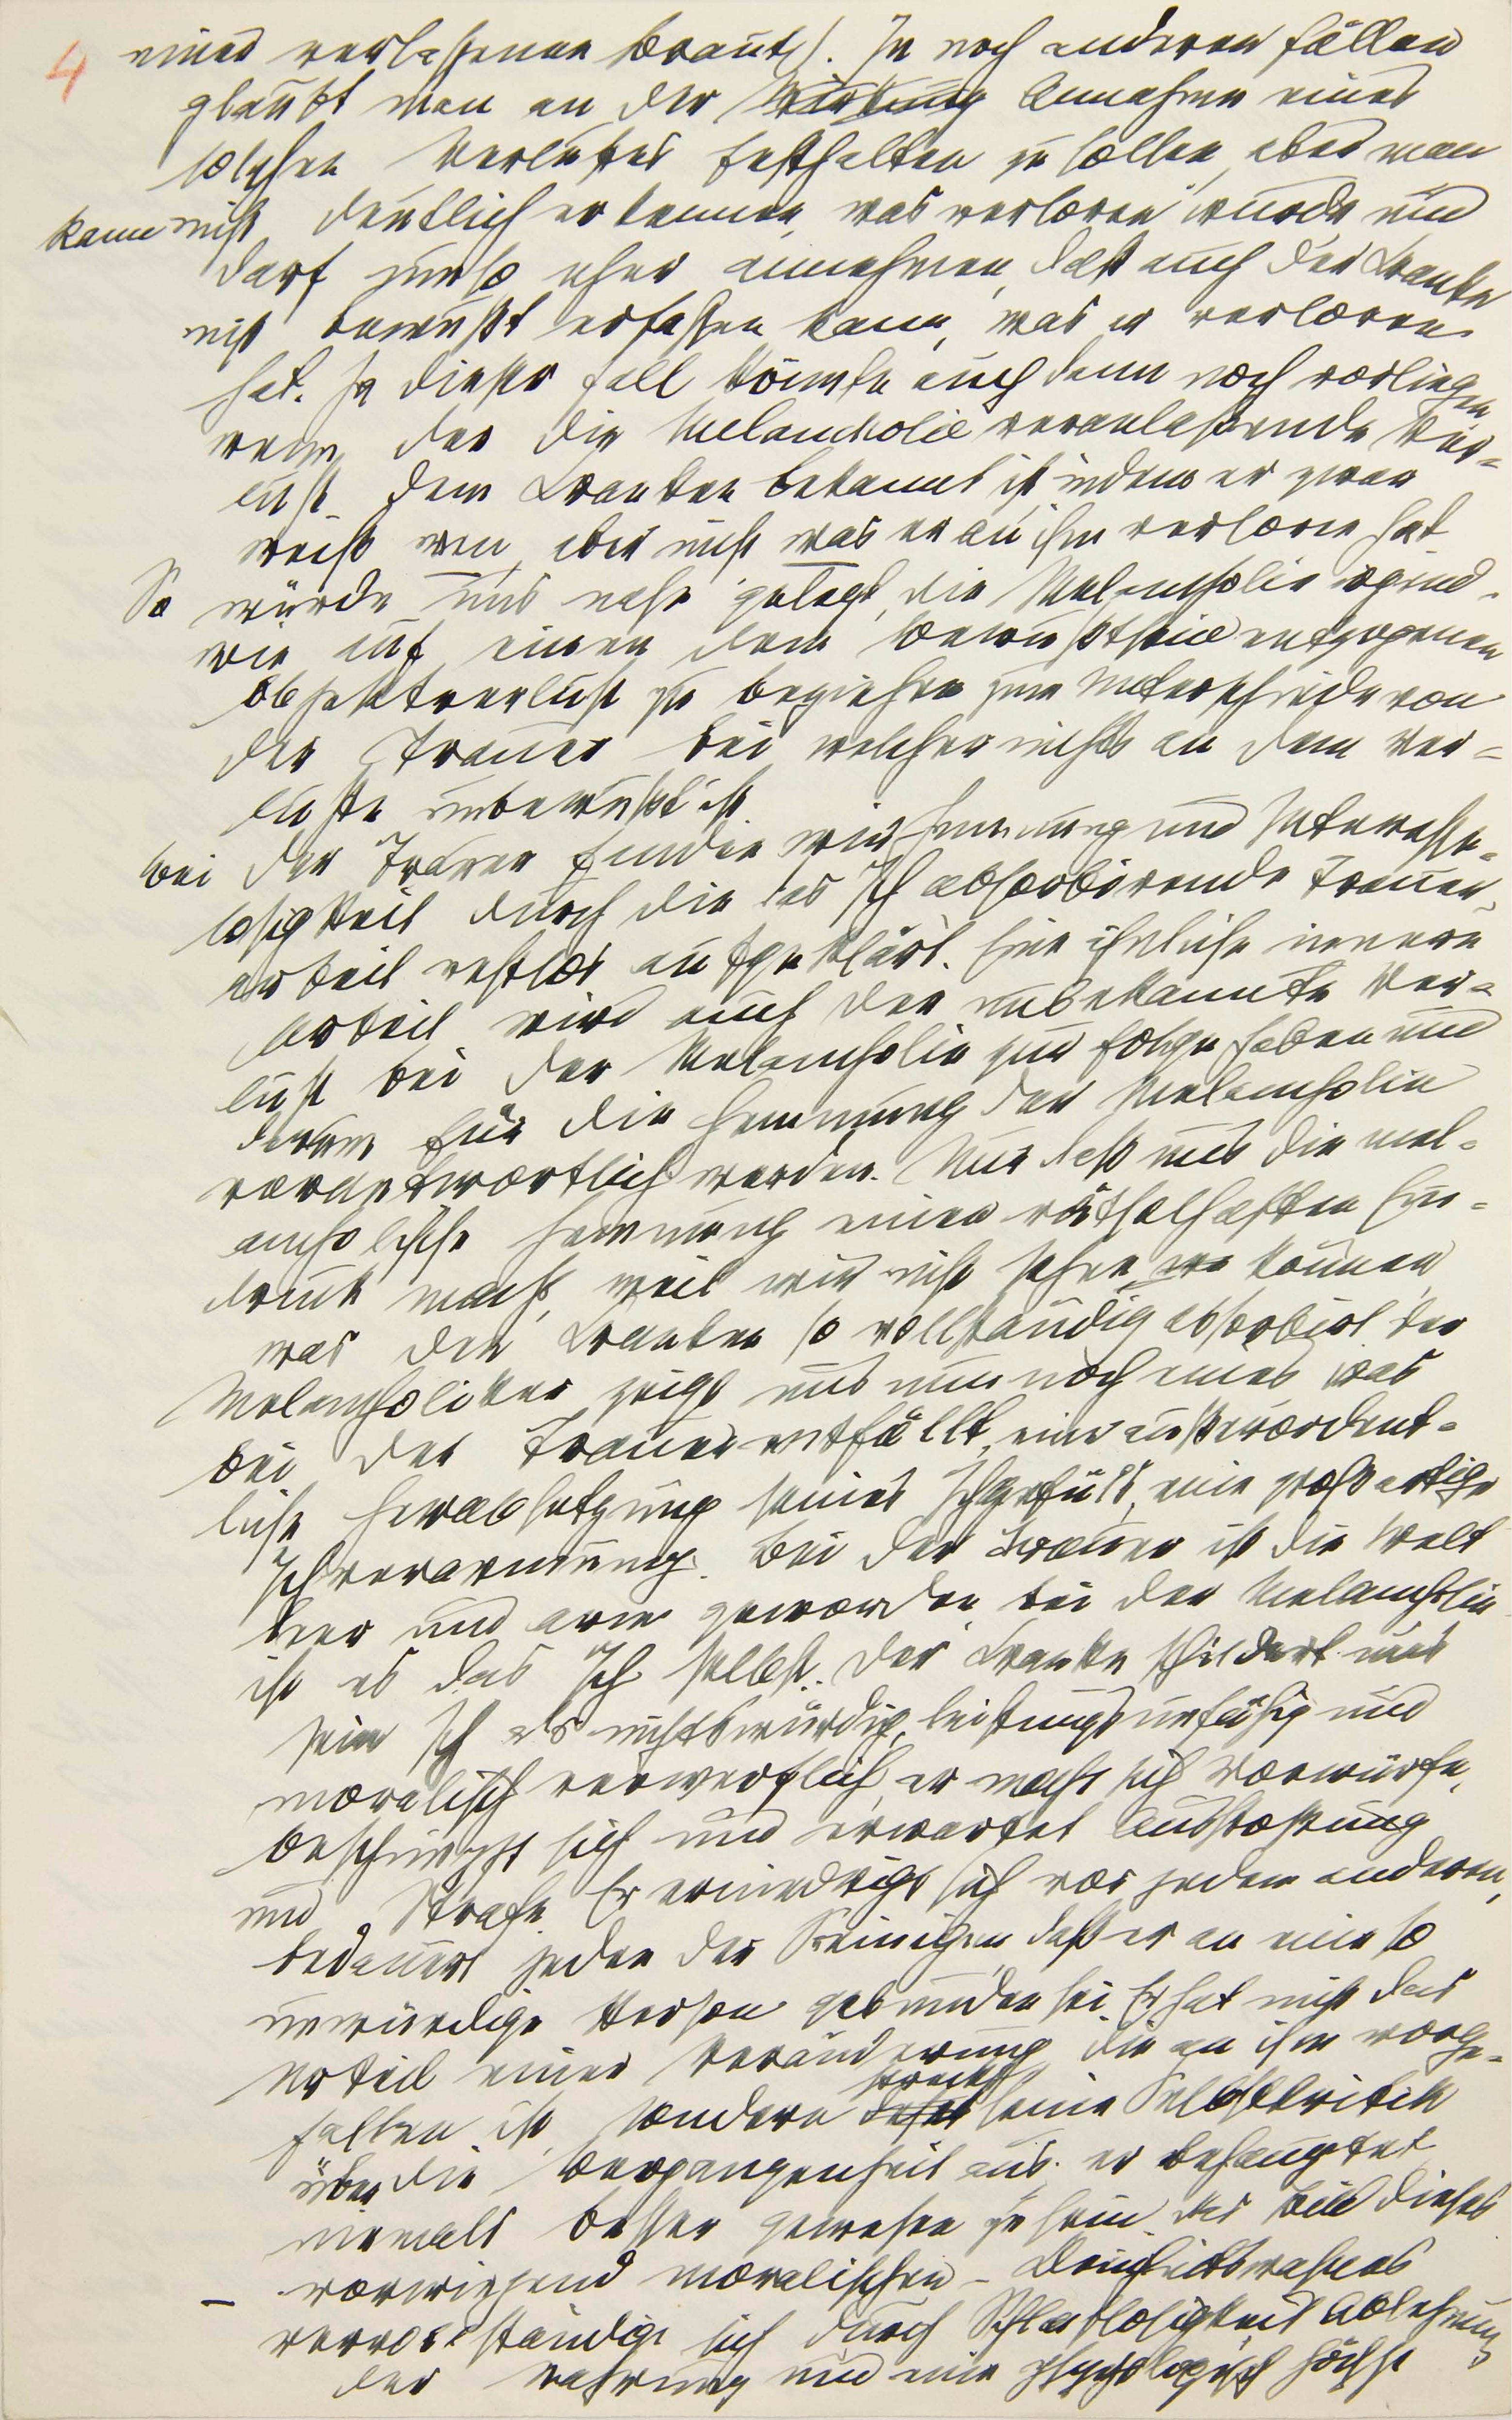 4
einer verlassenen Braut). In noch anderen Fällen
glaubt man an der Wirkung Annahme eines
solchen Verlustes festhalten zu sollen, aber man
kann nicht deutlich erkennen, was verloren wurde und
darf umso eher annehmen, daß auch der Kranke
nicht bewußt erfassen kann, was er verloren
hat. Ja dieser Fall könnte auch dann noch vorliegen,
wenn der die Melancholie veranlassende Ver-
lust dem Kranken bekannt ist, indem er zwar
weiß wen, aber nicht was er an ihm verloren hat.
So würde uns nahe gelegt, die Melancholie irgend-
wie auf einen dem Bewußtsein entzogenen
Objektverlust zu beziehen zum Unterschiede von
der Trauer bei welcher nichts an dem Ver-
luste unbewußt ist.
Bei der Trauer finden wir Hemmung und Interesse-
losigkeit durch die das Ich absorbirende Trauer-
arbeit restlos aufgeklärt. Eine ähnliche innere
Arbeit wird auch der unbekannte Ver-
lust bei der Melancholie zur Folge haben und
darum für die Hemmung der Melancholie
verantwortlich werden. Nur daß uns die mel-
ancholische Hemmung einen räthselhaften Ein-
druck macht, weil wir nicht sehen können,
was die Kranken so vollständig absorbirt. Der
Melancholiker zeigt uns nun noch eines was
bei der Trauer entfällt, eine außerordent-
liche Herabsetzung seines Ichgefühls, eine großartige
Ichverarmung. Bei der Trauer ist die Welt
leer und arm geworden, bei der Melancholie
ist es das Ich selbst. Der Kranke schildert uns
sein Ich als nichtswürdig, leistungsunfähig und
moralisch verwerflich, er macht sich Vorwürfe,
beschimpft sich und erwartet Ausstoßung
und Strafe. Er erniedrigt sich vor jedem anderen,
bedauert jeden der Seinigen, daß er an eine so
unwürdige Person gebunden sei. Er hat nicht das
Urteil einer Veränderung, die an ihm vorge-
streckt
fallen ist, sondern seine Selbstkritik
über die Vergangenheit aus; er behauptet
niemals besser gewesen zu sein. Das Bild dieses
– vorwiegend moralischen – Kleinheitswahnes
vervollständigt sich durch Schlaflosigkeit, Ablehnung
der Nahrung und eine psychologisch höchst